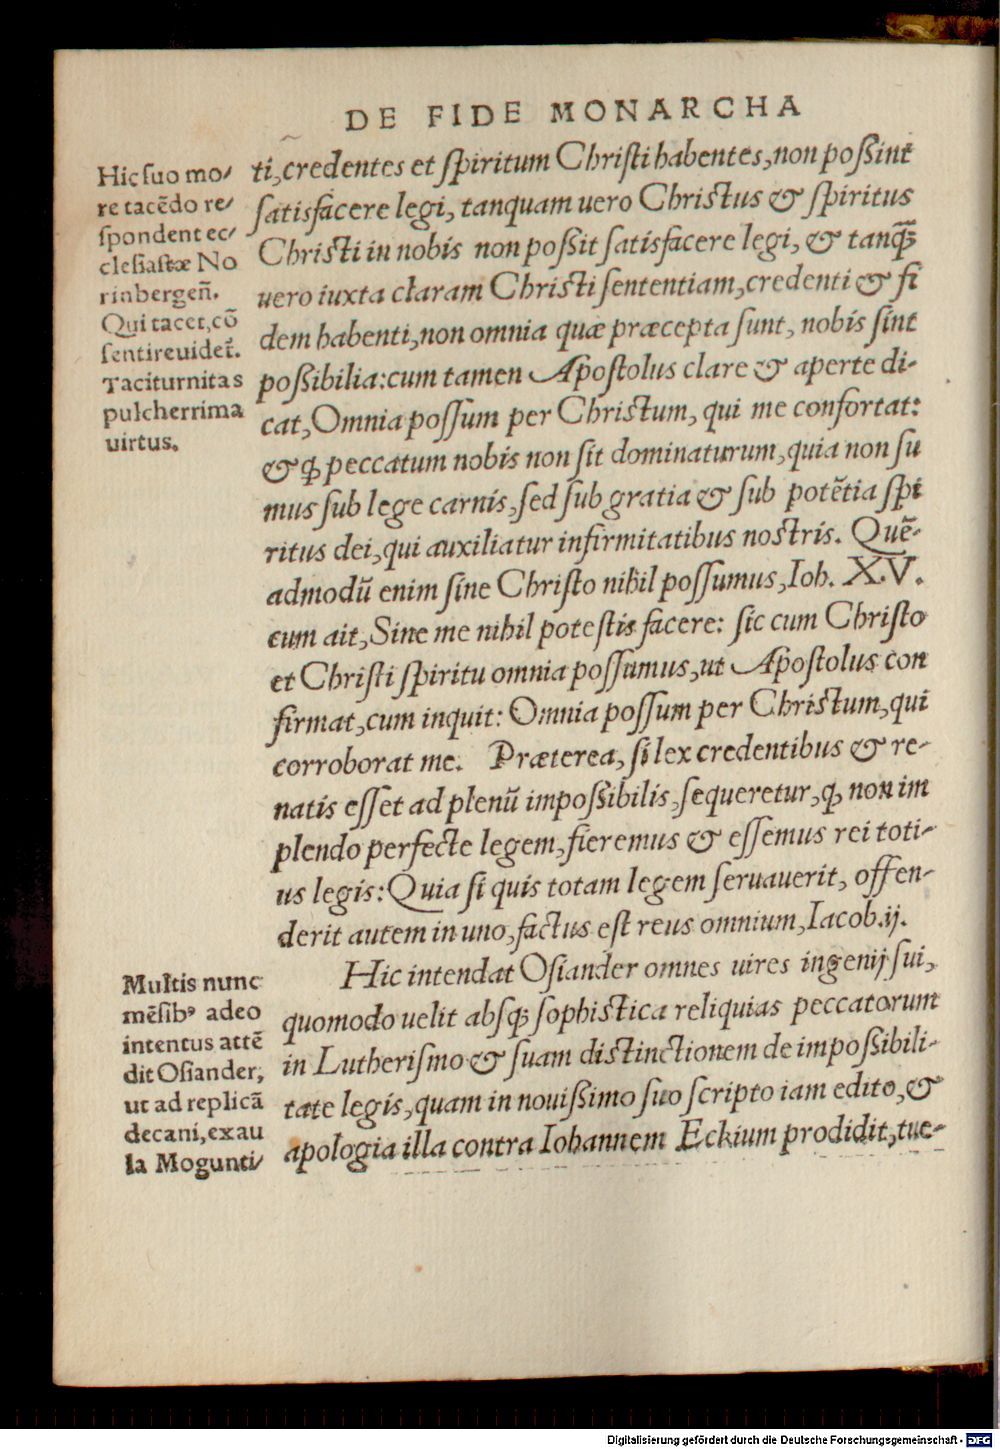 DE FIDE MONARCHA
Hic suo mo/
re tacēdo re/
spondent ec/
clesiastæ No
rinbergeñ.
Qui tacet, cō
sentire uidet̃.
Taciturnitas
pulcherrima
uirtus.
ti, credentes et spiritum Christi habentes, non poßint
satisfacere legi, tanquam uero Christus & spiritus
Christi in nobis non poßit satisfacere legi, & tanq̃
uero iuxta claram Christi sententiam, credenti & fi
dem habenti, non omnia quæ præcepta sunt, nobis sint
poßibilia: cum tamen Apostolus clare & aperte di-
cat, Omnia possum per Christum, qui me confortat:
& ꝙ peccatum nobis non sit dominaturum, quia non su
mus sub lege carnis, sed sub gratia & sub potētia spi
ritus dei, qui auxiliatur infirmitatibus nostris. Quē-
admodū enim sine Christo nihil possumus, Ioh. XV.
cum ait, Sine me nihil potestis facere: sic cum Christo
et Christi spiritu omnia possumus, ut Apostolus con
firmat, cum inquit: Omnia possum per Christum, qui
corroborat me. Præterea, si lex credentibus & re-
natis esset ad plenū impoßibilis, sequeretur, ꝙ non im
plendo perfecte legem, fieremus & essemus rei toti-
us legis: Quia si quis totam legem seruauerit, offen-
derit autem in uno, factus est reus omnium, Iacob. ij.
Hic intendat Osiander omnes uires ingenij sui,
quomodo uelit absq; sophistica reliquias peccatorum
in Lutherismo & suam distinctionem de impoßibili-
tate legis, quam in nouißimo suo scripto iam edito, &
apologia illa contra Iohannem Eckium prodidit, tue-
Multis nunc
mēsibꝰ adeo
intentus attē
dit Osiander,
ut ad replicā
decani, ex au
la Mogunti/
Digitalisierung gefördert durch die Deutsche Forschungsgemeinschaft - DFG